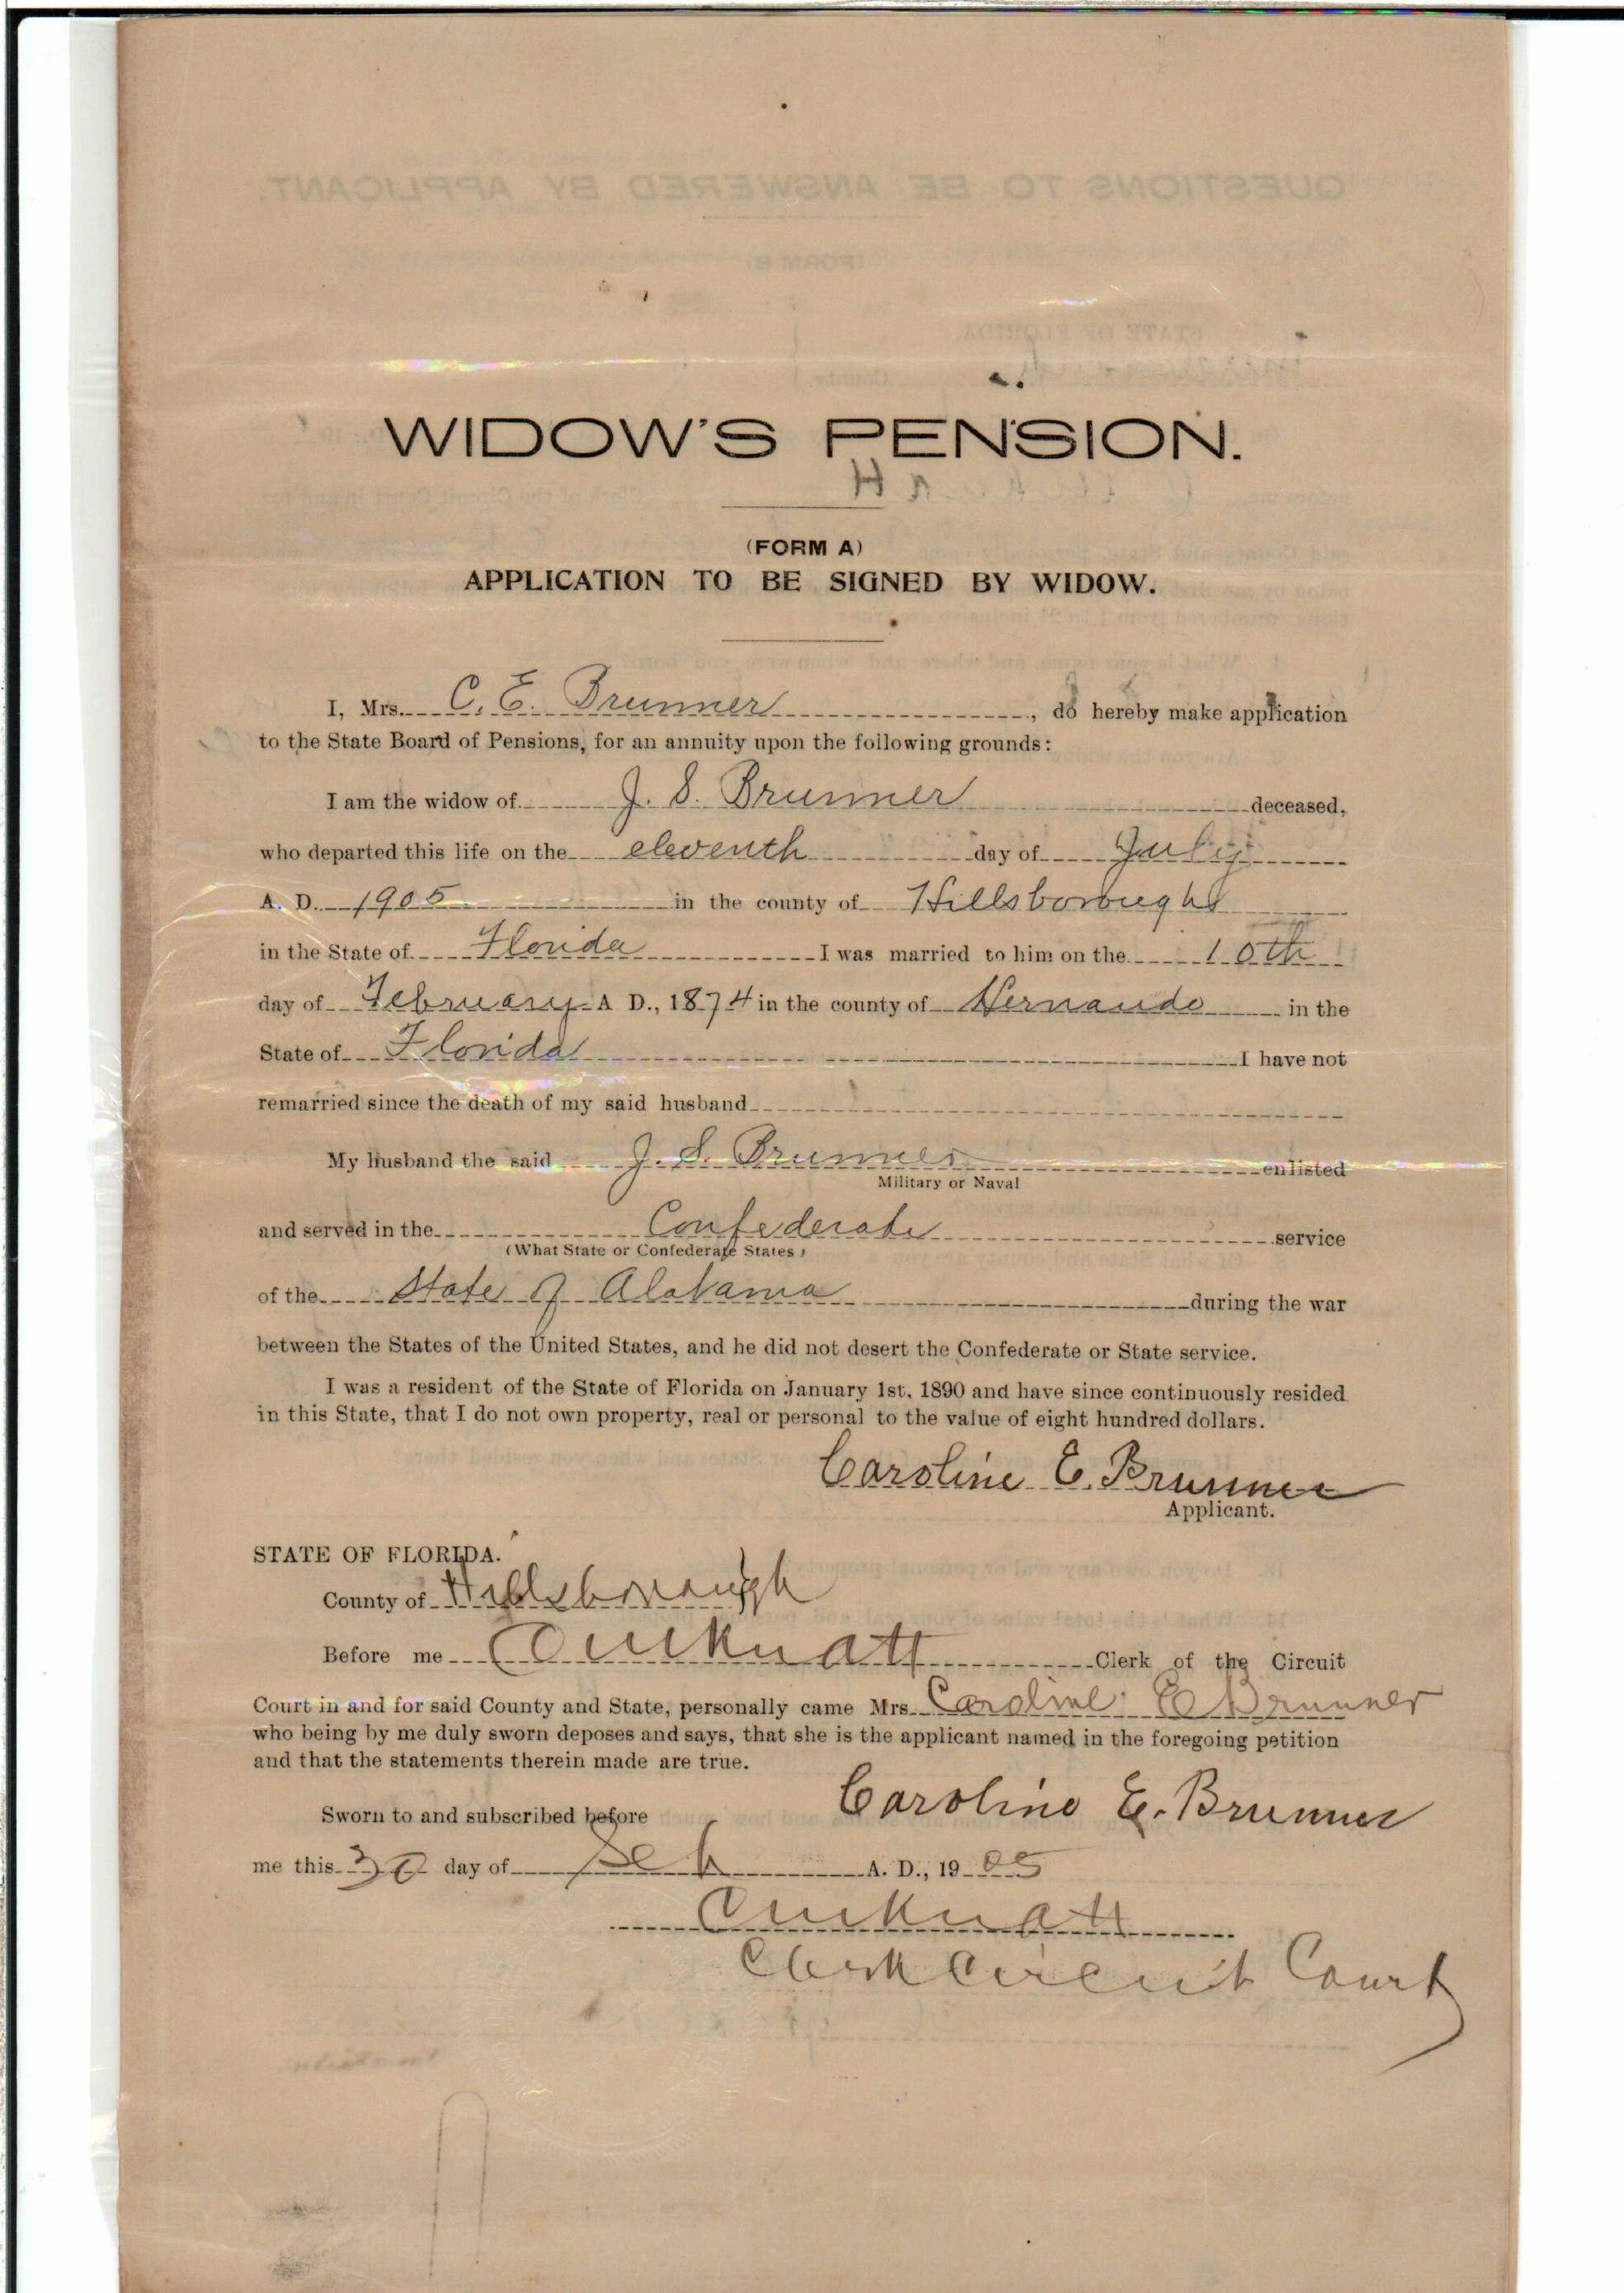 WIDOW'S PENSION.
(FORM A)
APPLICATION TO BE SIGNED BY WIDOW.
I, Mrs. C. E. Brunner, do hereby make application
to the State Board of Pensions, for an annuity upon the following grounds:
I am the widow of J. S. Brunner deceased,
who departed this life on the eleventh day of July
A. D. 1905 in the county of Hillsborough
in the State of Florida I was married to him on the 10th
day of February A D., 1874 in the county of Hernando in the
State of Florida I have not
remarried since the death of my said husband
My husband the said J. S. Brunner enlisted
Military or Naval
and served in the Confederate service
(What State or Confederate States)
of the State of Alabama during the war
between the States of the United States, and he did not desert the Confederate or State service.
I was a resident of the State of Florida on January 1st, 1890 and have since continuously resided
in this State, that I do not own property, real or personal to the value of eight hundred dollars.
Caroline E. Brunner
Applicant.
STATE OF FLORIDA.
County of Hillsborough
Before me Clerk of the Circuit
Court in and for said County and State, personally came Mrs. Caroline E Brunner
who being by me duly sworn deposes and says, that she is the applicant named in the foregoing petition
and that the statements therein made are true.
Caroline E. Brunner
Sworn to and subscribed before
me this 30 day of A. D., 1905
Clerk Circuit Court